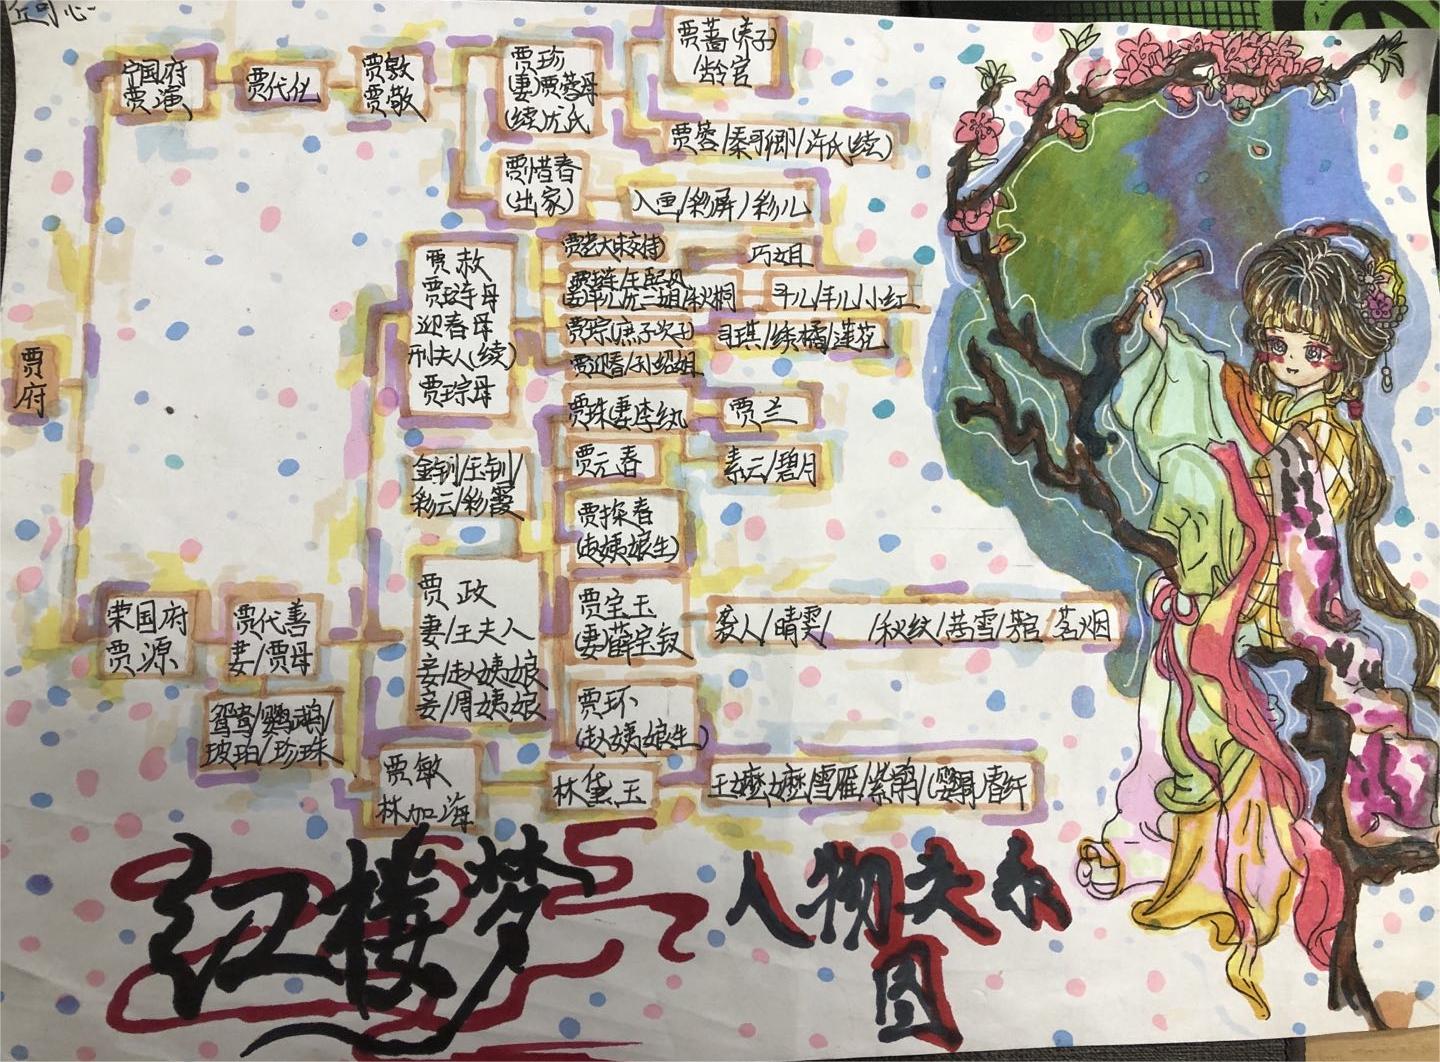 丘可心
宁国府
贾演
贾代化
贾敷
贾敬
贾珍
(妻)贾蓉母
(续)尤氏
贾蔷(养子)
龄官
贾蓉/秦可卿/许氏(续)
贾惜春
(出家)
入画/彩屏/彩儿
贾府
贾赦
贾琏母
迎春母
刑夫人(续)
贾琮母
巧姐
贾琏/王熙凤
尤二姐/秋桐
丰儿/小红
贾琮(庶子次子)
司琪/绣橘/莲花
贾迎春/孙绍姐
贾珠妻李纨
贾兰
金钏/玉钏/
彩云/彩霞
贾元春
素云/碧月
贾探春
(赵姨娘生)
荣国府
贾源
贾代善
妻/贾母
鸳鸯/鹦鹉/
琥珀/珍珠
贾政
妻/王夫人
妾/赵姨娘
妾/周姨娘
贾宝玉
(妻)薛宝钗
袭人/晴雯/ /秋纹/茜雪/ 茗烟
贾环
(赵姨娘生)
贾敏
林加海
林黛玉
王嬷嬷/雪雁/紫鹃/ /春纤
红楼梦
人物关系
图